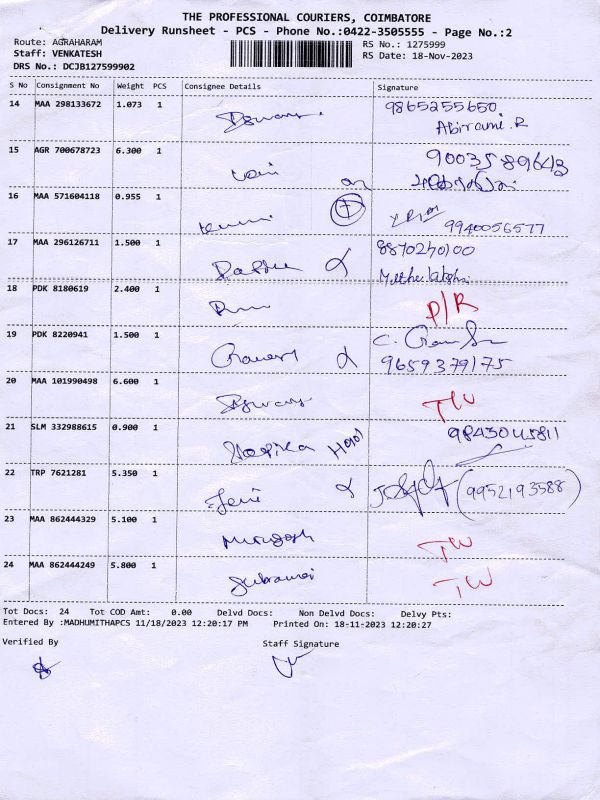 THE PROFESSIONAL COURIERS, COIMBATORE
Delivery Runsheet - PCS - Phone No.:0422-3505555 - Page No.:2
Route: AGRAHARAM
RS No.: 1275999
Staff: VENKATESH
RS Date: 18-Nov-2023
DRS No.: DCJB127599902
S No Consignment No Weight PCS Consignee Details Signature
14 MAA 298133672 1.073 1 9865255650
Abirami.R
15 AGR 700678723 6.300 1 9003589643
16 MAA 571604118 0.955 1 9940056577
17 MAA 296126711 1.500 1 8870270100
18 PDK 8180619 2.400 1 P/R
19 PDK 8220941 1.500 1
9659379175
20 MAA 101990498 6.600 1
21 SLM 332988615 0.900 1 9843045811
22 TRP 7621281 5.350 1 Jeni (9952193588)
23 MAA 862444329 5.100 1 Murugesh TW
24 MAA 862444249 5.800 1 TW
Tot Docs: 24 Tot COD Amt: 0.00 Delvd Docs: Non Delvd Docs: Delvy Pts:
Entered By :MADHUMITHAPCS 11/18/2023 12:20:17 PM Printed On: 18-11-2023 12:20:27
Verified By Staff Signature